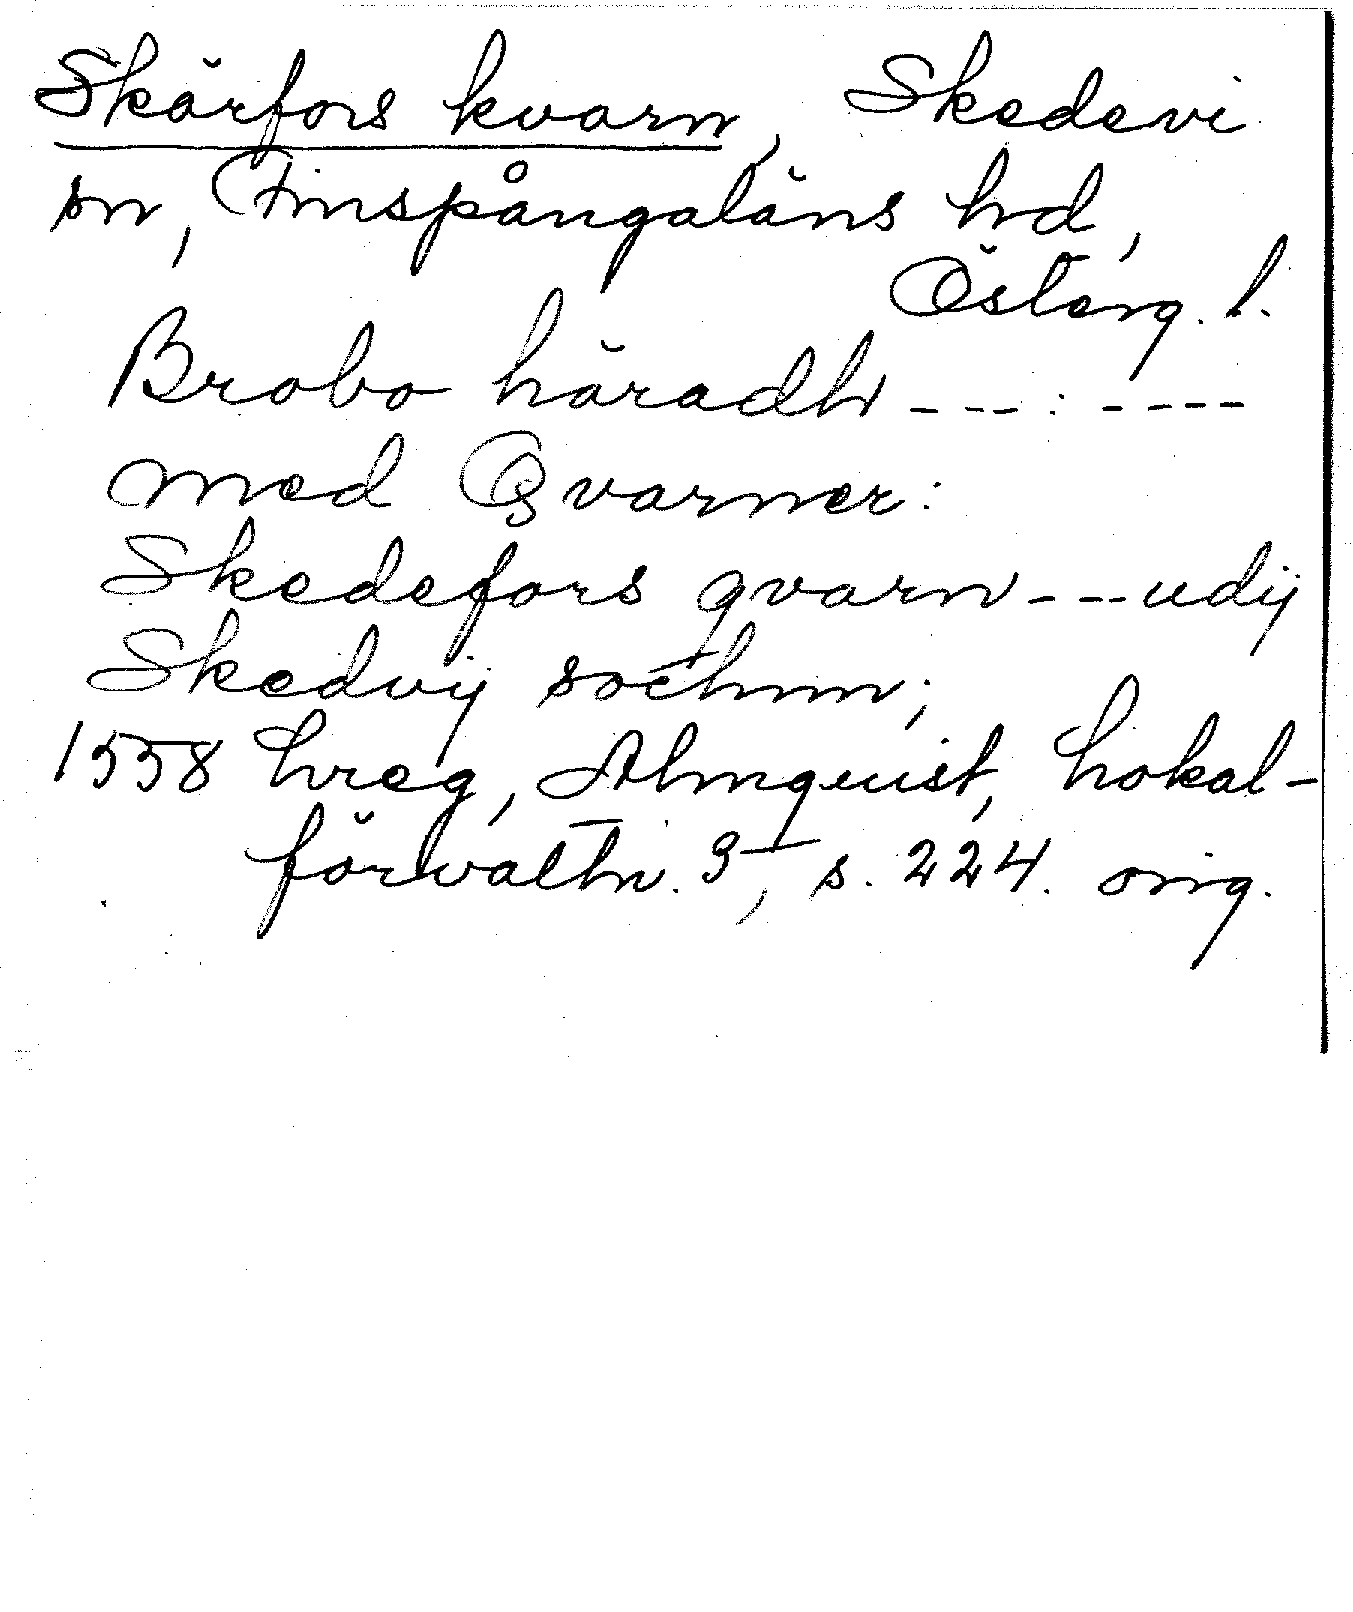 Skärfors kvarn, Skedevi
sn, Finspångaläns hd,
Österg. l.
Brobo häradh --- : ----
med Qvarner:
Skedefors qvarn --- udij
Skedvij sochnn;
1558 hreg, Almquist, Lokal-
förvaltn. 3, s. 224. orig.